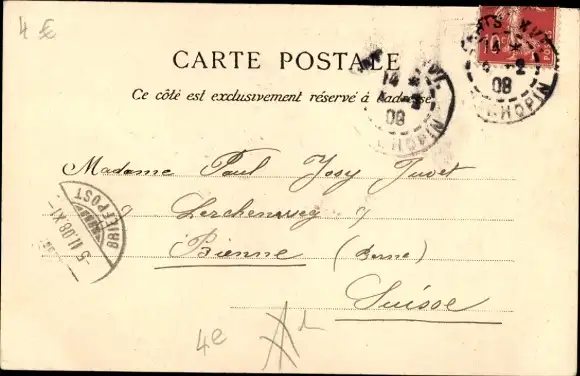 4 €
CARTE POSTALE
Ce côté est exclusivement réservé à l'adresse
14
2
08
14
08
10
Madame Paul Josy Juvet
Lerchenweg 7
Bienne (Berne)
Suisse
BRIEFPOST
-5.II.08.XI-
4e